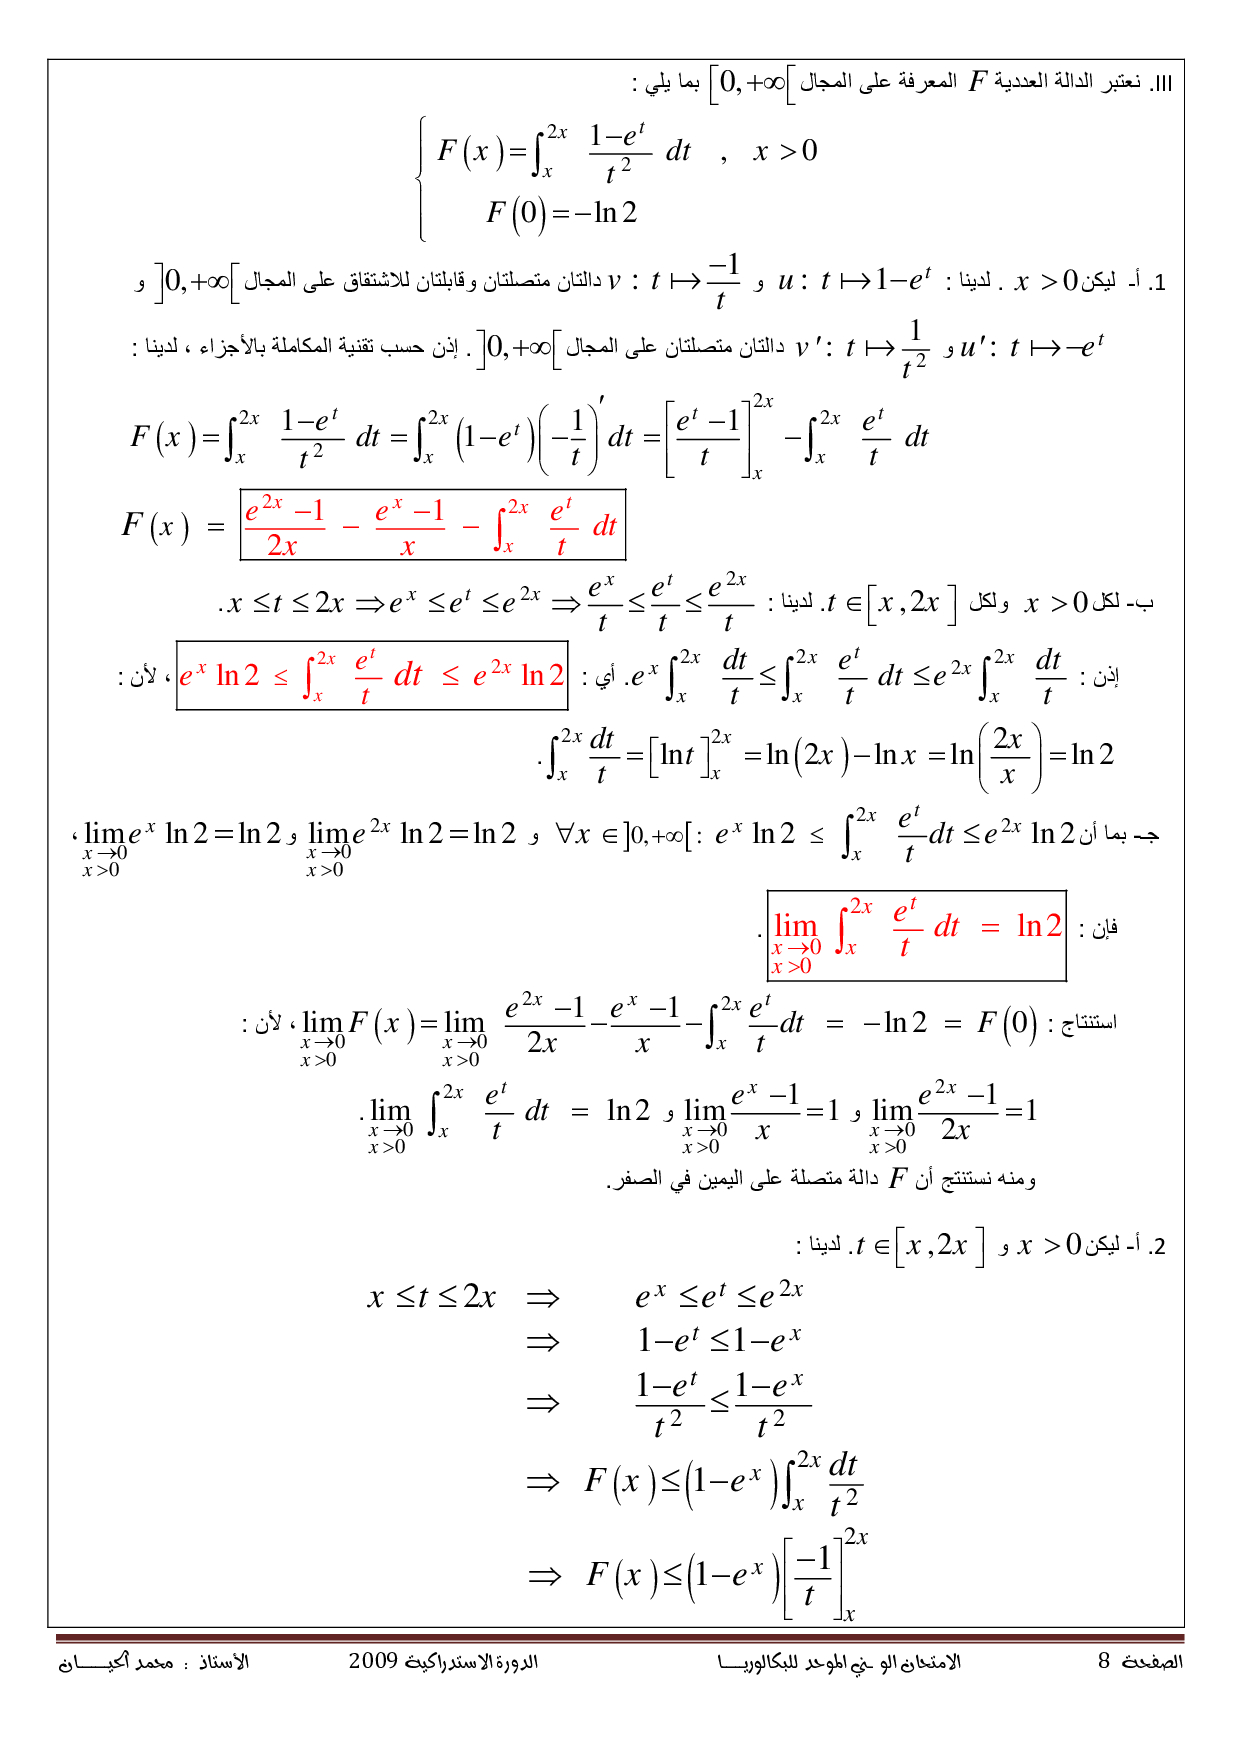 III. نعتبر الدالة العددية F المعرفة على المجال [0,+∞[ بما يلي :
{ F(x) = ∫_x^{2x} (1−e^t)/t^2 dt , x > 0
F(0) = −ln 2
1. أ- ليكن x > 0 . لدينا : u : t ↦ 1−e^t و v : t ↦ −1/t دالتان متصلتان وقابلتان للاشتقاق على المجال ]0,+∞[ و
u′ : t ↦ −e^t و v′ : t ↦ 1/t^2 دالتان متصلتان على المجال ]0,+∞[ . إذن حسب تقنية المكاملة بالأجزاء ، لدينا :
F(x) = ∫_x^{2x} (1−e^t)/t^2 dt = ∫_x^{2x} (1−e^t)(−1/t)′ dt = [(e^t−1)/t]_x^{2x} − ∫_x^{2x} e^t/t dt
F(x) = (e^{2x}−1)/2x − (e^x−1)/x − ∫_x^{2x} e^t/t dt
ب- لكل x > 0 ولكل t ∈ [x,2x]. لدينا : x ≤ t ≤ 2x ⇒ e^x ≤ e^t ≤ e^{2x} ⇒ e^x/t ≤ e^t/t ≤ e^{2x}/t .
إذن : e^x ∫_x^{2x} dt/t ≤ ∫_x^{2x} e^t/t dt ≤ e^{2x} ∫_x^{2x} dt/t . أي : e^x ln 2 ≤ ∫_x^{2x} e^t/t dt ≤ e^{2x} ln 2 ، لأن :
∫_x^{2x} dt/t = [ln t]_x^{2x} = ln(2x) − ln x = ln(2x/x) = ln 2 .
جـ- بما أن ∀x ∈ ]0,+∞[ : e^x ln 2 ≤ ∫_x^{2x} e^t/t dt ≤ e^{2x} ln 2 و lim_{x→0, x>0} e^{2x} ln 2 = ln 2 و lim_{x→0, x>0} e^x ln 2 = ln 2 ،
فإن : lim_{x→0, x>0} ∫_x^{2x} e^t/t dt = ln 2 .
استنتاج : lim_{x→0, x>0} F(x) = lim_{x→0, x>0} (e^{2x}−1)/2x − (e^x−1)/x − ∫_x^{2x} e^t/t dt = −ln 2 = F(0) ، لأن :
lim_{x→0, x>0} (e^{2x}−1)/2x = 1 و lim_{x→0, x>0} (e^x−1)/x = 1 و lim_{x→0, x>0} ∫_x^{2x} e^t/t dt = ln 2 .
ومنه نستنتج أن F دالة متصلة على اليمين في الصفر.
2. أ- ليكن x > 0 و t ∈ [x,2x]. لدينا :
x ≤ t ≤ 2x ⇒ e^x ≤ e^t ≤ e^{2x}
⇒ 1−e^t ≤ 1−e^x
⇒ (1−e^t)/t^2 ≤ (1−e^x)/t^2
⇒ F(x) ≤ (1−e^x) ∫_x^{2x} dt/t^2
⇒ F(x) ≤ (1−e^x) [−1/t]_x^{2x}
الصفحة 8 الامتحان الو ـني الموحد للبكالوريــــا الدورة الاستدراكية 2009 الأستاذ : محمد الحيـــــان